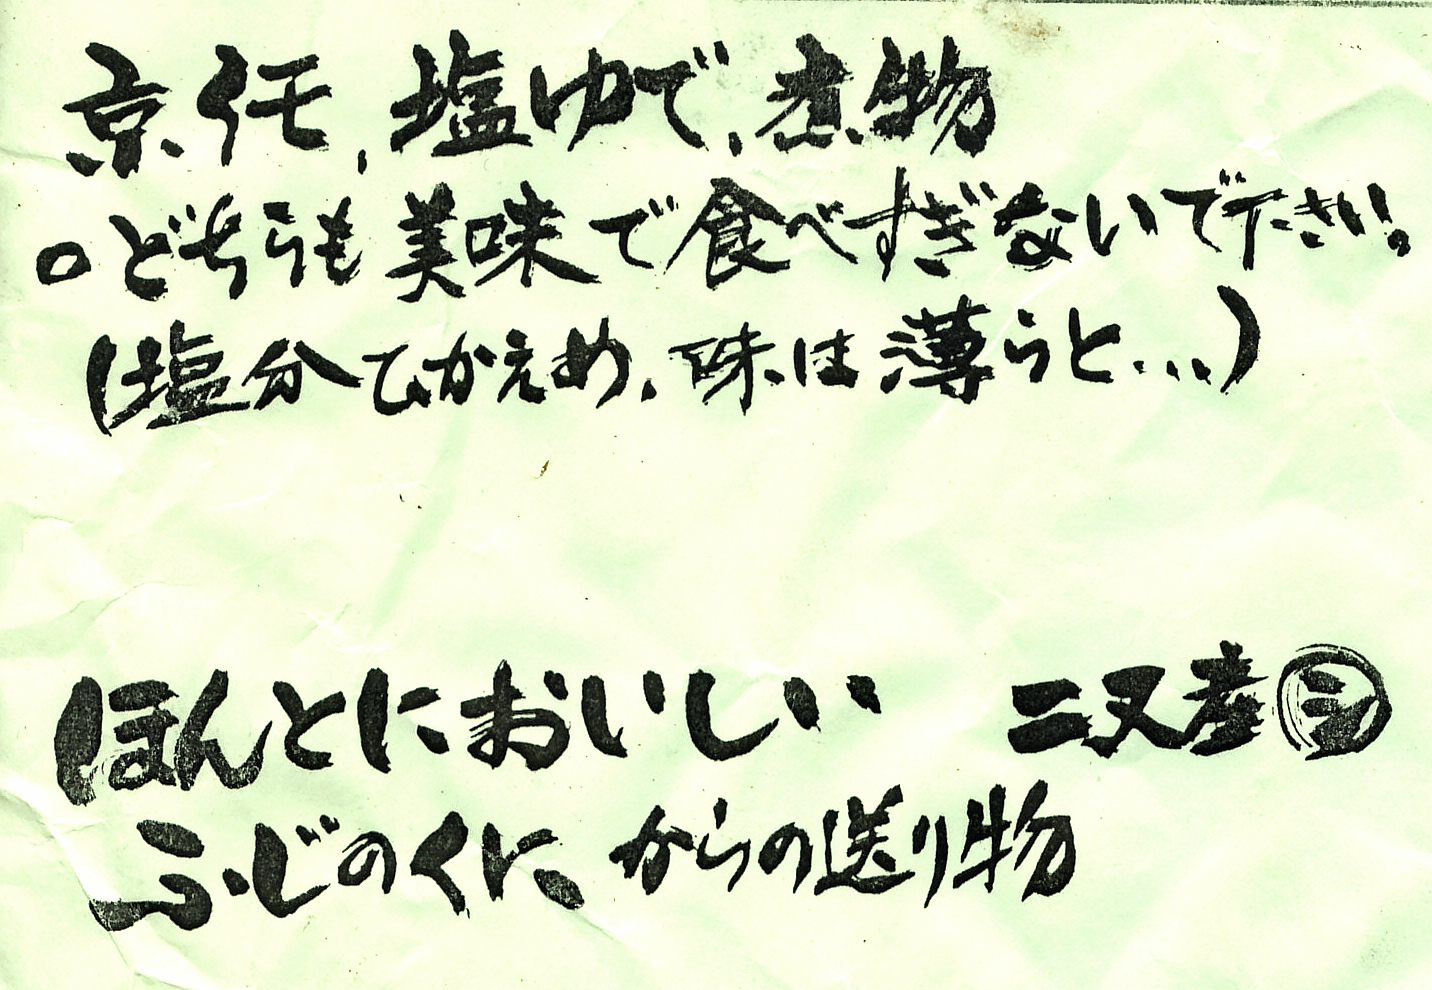 京イモ、塩ゆで、煮物
○どちらも美味で食べすぎないで下さい!。
(塩分ひかえめ、味は薄らと...)
ほんとにおいしい 二又産
ふじのくに、からの送り物